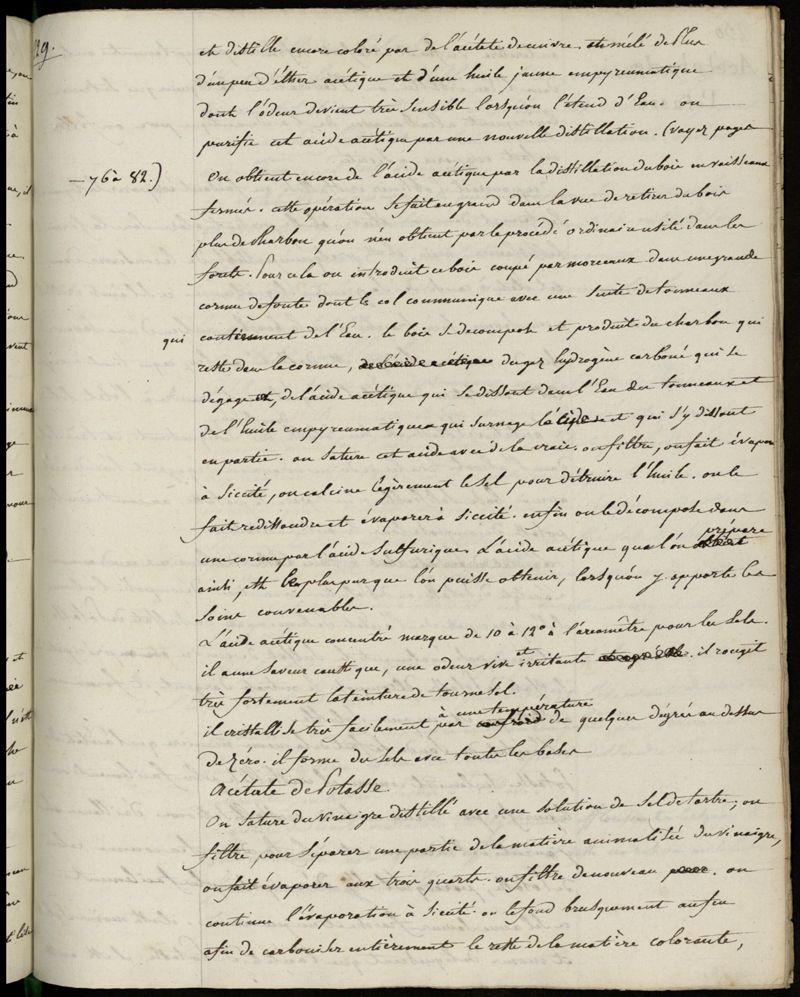 29.
et distille encore coloré par de l'acétete de cuivre. et mêlé de plus
d'un peu d'éther acétique et d'une huile jaune empyreumatique
dont l'odeur devient très sensible lorsqu'on l'étend d'Eau. on
purifie cet acide acétique par une nouvelle distillation. (voyez pages
— 76 à 82.)
On obtient encore de l'acide acétique par la distillation du bois en vaisseaux
fermés. cette opération se fait en grand dans la vue de retirer du bois
plus de charbon qu'on n'en obtient par le procédé ordinaire usité dans les
forêts. Pour cela on introduit ce bois coupé par morceaux dans une grande
cornue de fonte dont le col communique avec une suite de tonneaux
qui contiennent de l'Eau. le bois se décompose et produit du charbon qui
reste dans la cornue, de l'acide acétique du gaz hydrogène carboné qui se
dégage et, de l'acide acétique qui se dissout dans l'Eau des tonneaux et
de l'huile empyreumatique qui surnage l'acide et qui s'y dissout
en partie. on sature cet acide avec de la craie. on filtre, on fait évaporer
à siccité, on calcine légèrement le sel pour détruire l'huile. on le
fait redissoudre et évaporer à siccité. enfin on le décompose dans
une cornue par l'acide sulfurique. L'acide acétique que l'on prépare
ainsi, est le plus pur que l'on puisse obtenir, lorsqu'on y apporte les
soins convenables.
L'acide acétique concentré marque de 10 à 12° à l'aréomètre pour les sels.
il a une saveur caustique, une odeur vive et irritante. il rougit
très fortement la teinture de tournesol.
il cristallise très facilement par à une température de quelques dégrés au dessus
de zéro. il forme du sels avec toutes les bases
Acétate de Potasse.
On sature du vinaigre distillé avec une solution de sel de tartre; on
filtre, pour séparer une partie de la matière animalisée du vinaigre,
on fait évaporer aux trois quarts. on filtre de nouveau. on
continue l'évaporation à siccité. on le fond brusquement au feu
afin de carboniser entièrement le reste de la matière colorante,